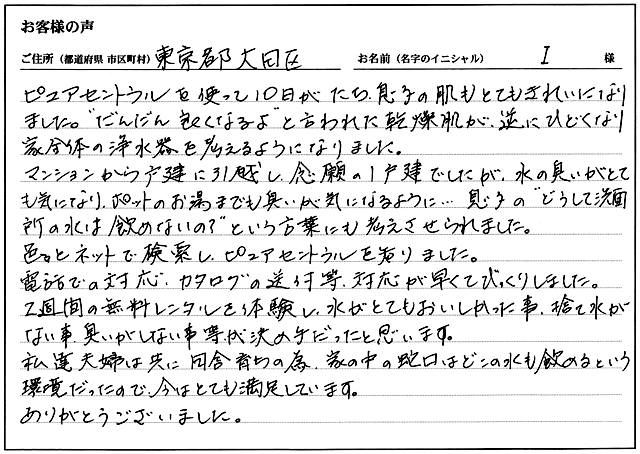 お客様の声
ご住所（都道府県 市区町村）東京都大田区 お名前（名字のイニシャル） I 様
ピュアセントラルを使って10日がたち、息子の肌もとてもきれいになり
ました。"だんだん良くなるよ"と言われた乾燥肌が、逆にひどくなり
家全体の浄水器を考えるようになりました。
マンションから戸建に引越し、念願の1戸建でしたが、水の臭いがとて
も気になり、ポットのお湯までも臭いが気になるように… 息子の"どうして洗面
所の水は飲めないの?"という言葉にも考えさせられました。
色々とネットで検索し、ピュアセントラルを知りました。
電話での対応、カタログの送付等、対応が早くてびっくりしました。
2週間の無料レンタルを体験し、水がとてもおいしかった事、捨て水が
ない事、臭いがしない事等が決め手だったと思います。
私達夫婦は共に田舎育ちの為、家の中の蛇口はどこの水も飲めるという
環境だったので、今はとても満足しています。
ありがとうございました。